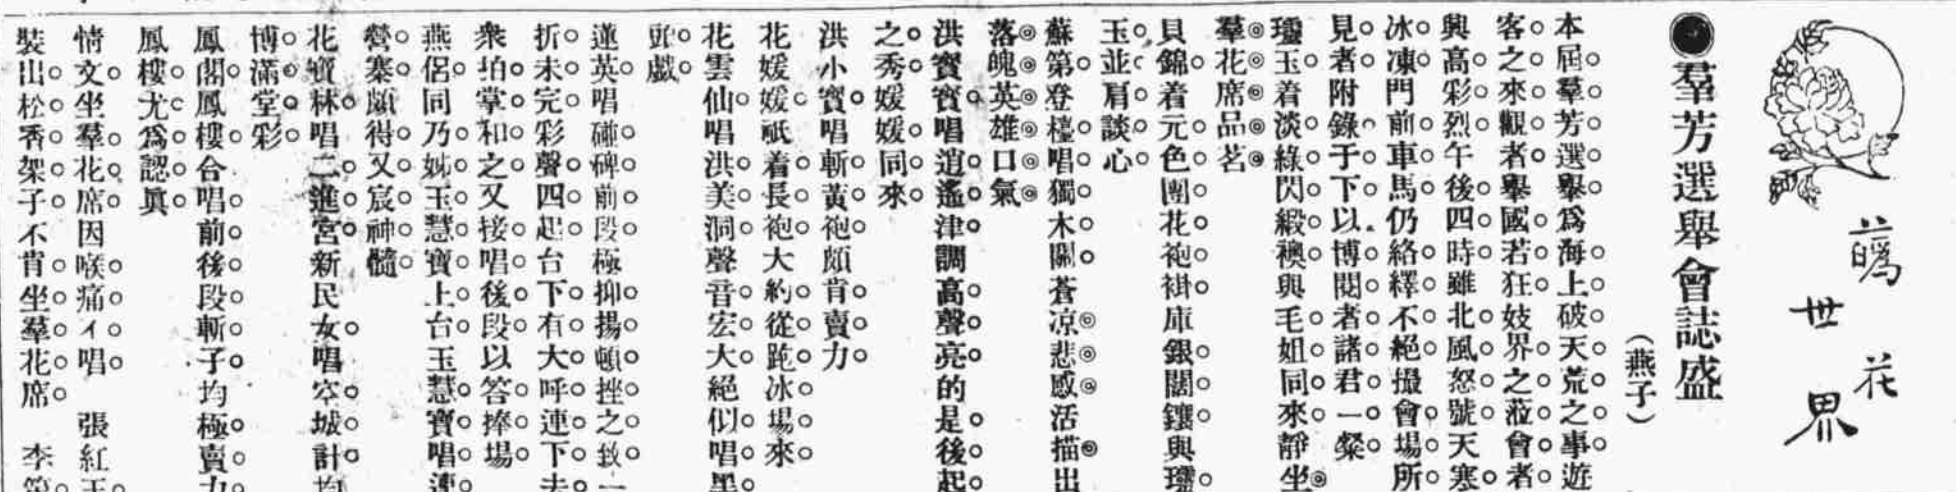 花世界
●羣芳選舉會誌盛
（燕子）
本屆羣芳選舉爲海上破天荒之事遊
客之來觀者舉國若狂妓界之蒞會者
興高彩烈午後四時雖北風怒號天寒
冰凍門前車馬仍絡繹不絕撮會場所
見者附錄于下以博閱者諸君一粲
瓊玉着淡綠閃緞襖與毛姐同來靜坐
羣花席品茗
貝錦着元色團花袍褂庫銀闊鑲與瓊
玉並肩談心
蘇第登檯唱獨木關蒼凉悲感活描出
落魄英雄口氣
洪寶寶唱逍遙津調高聲亮的是後起
之秀媛媛同來
洪小寶唱斬黃袍頗肯賣力
花媛媛祇着長袍大約從跑冰場來
花雲仙唱洪美洞聲音宏大絕似唱黑
頭戲
蓮英唱碰碑前段極抑揚頓挫之致一
折未完彩聲四起台下有大呼連下去
衆拍掌和之又接唱後段以答捧場
燕侶同乃姊玉慧寶上台玉慧寶唱連
營寨頗得又宸神髓
花寶林唱二進宮新民女唱空城計均
博滿堂彩
鳳閣鳳樓合唱前後段斬子均極賣力
鳳樓尤爲認眞
情文坐羣花席因喉痛不唱　張紅玉
裝出松香架子不肯坐羣花席　李第